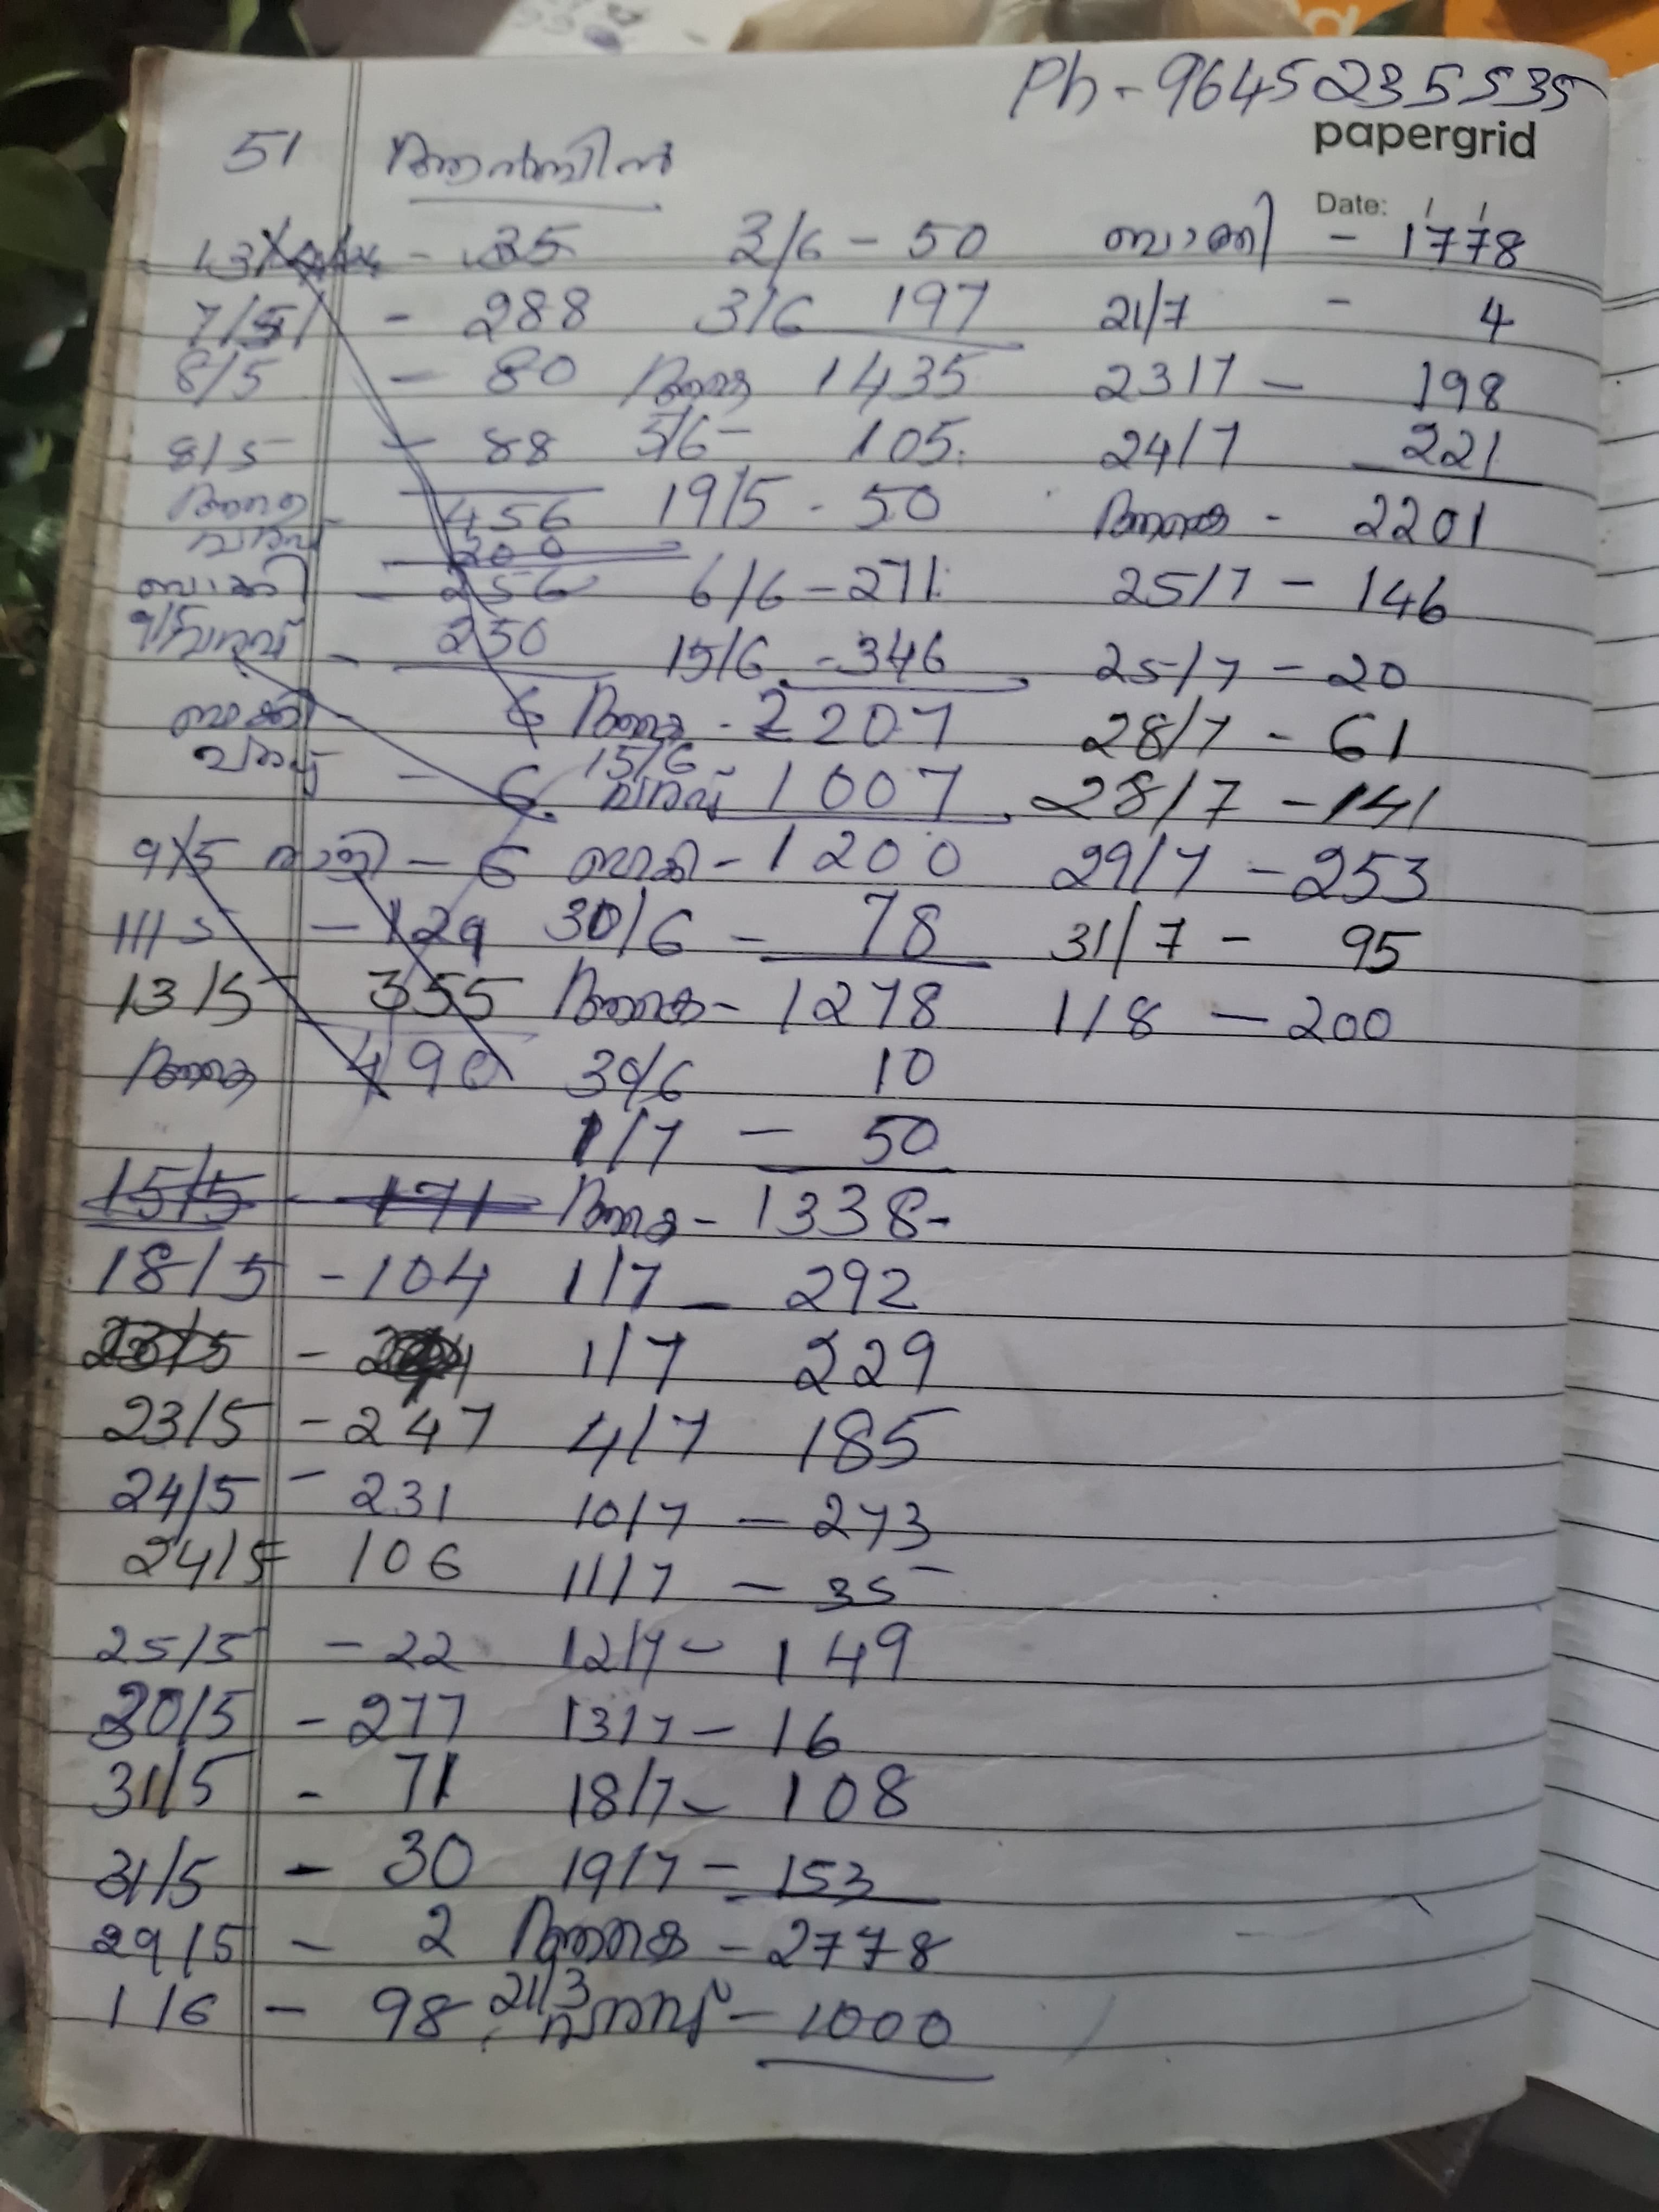 Ph - 9645235535
papergrid
Date:
51
35
7/5 - 288
8/5 - 80
8/5 - 88
456
വരവ് - 200
ബാക്കി - 256
9/5 വരവ് - 250
ബാക്കി - 6
വരവ് - 6
9/5 ബാക്കി - 6
11/5 - 129
13/5 355
തുക 490
15/5 - 171
18/5 - 104
23/5 -
23/5 - 247
24/5 - 231
24/5 106
25/5 - 22
30/5 - 277
31/5 - 71
31/5 - 30
29/5 - 2
1/6 - 98
3/6 - 50
3/6 197
തുക 1435
5/6 - 105
19/5 - 50
6/6 - 271
15/6 - 346
തുക - 2207
15/6
വരവ് 1007
ബാക്കി - 1200
30/6 - 78
തുക - 1278
30/6 10
1/7 - 50
തുക - 1338 -
1/7 - 292
1/7 229
4/7 185
10/7 - 273
11/7 - 35
12/7 - 149
13/7 - 16
18/7 - 108
19/7 - 153
തുക - 2778
21/3
വരവ് - 1000
ബാക്കി - 1778
21/7 - 4
23/7 - 198
24/7 221
തുക - 2201
25/7 - 146
25/7 - 20
28/7 - 61
28/7 - 141
29/7 - 253
31/7 - 95
1/8 - 200